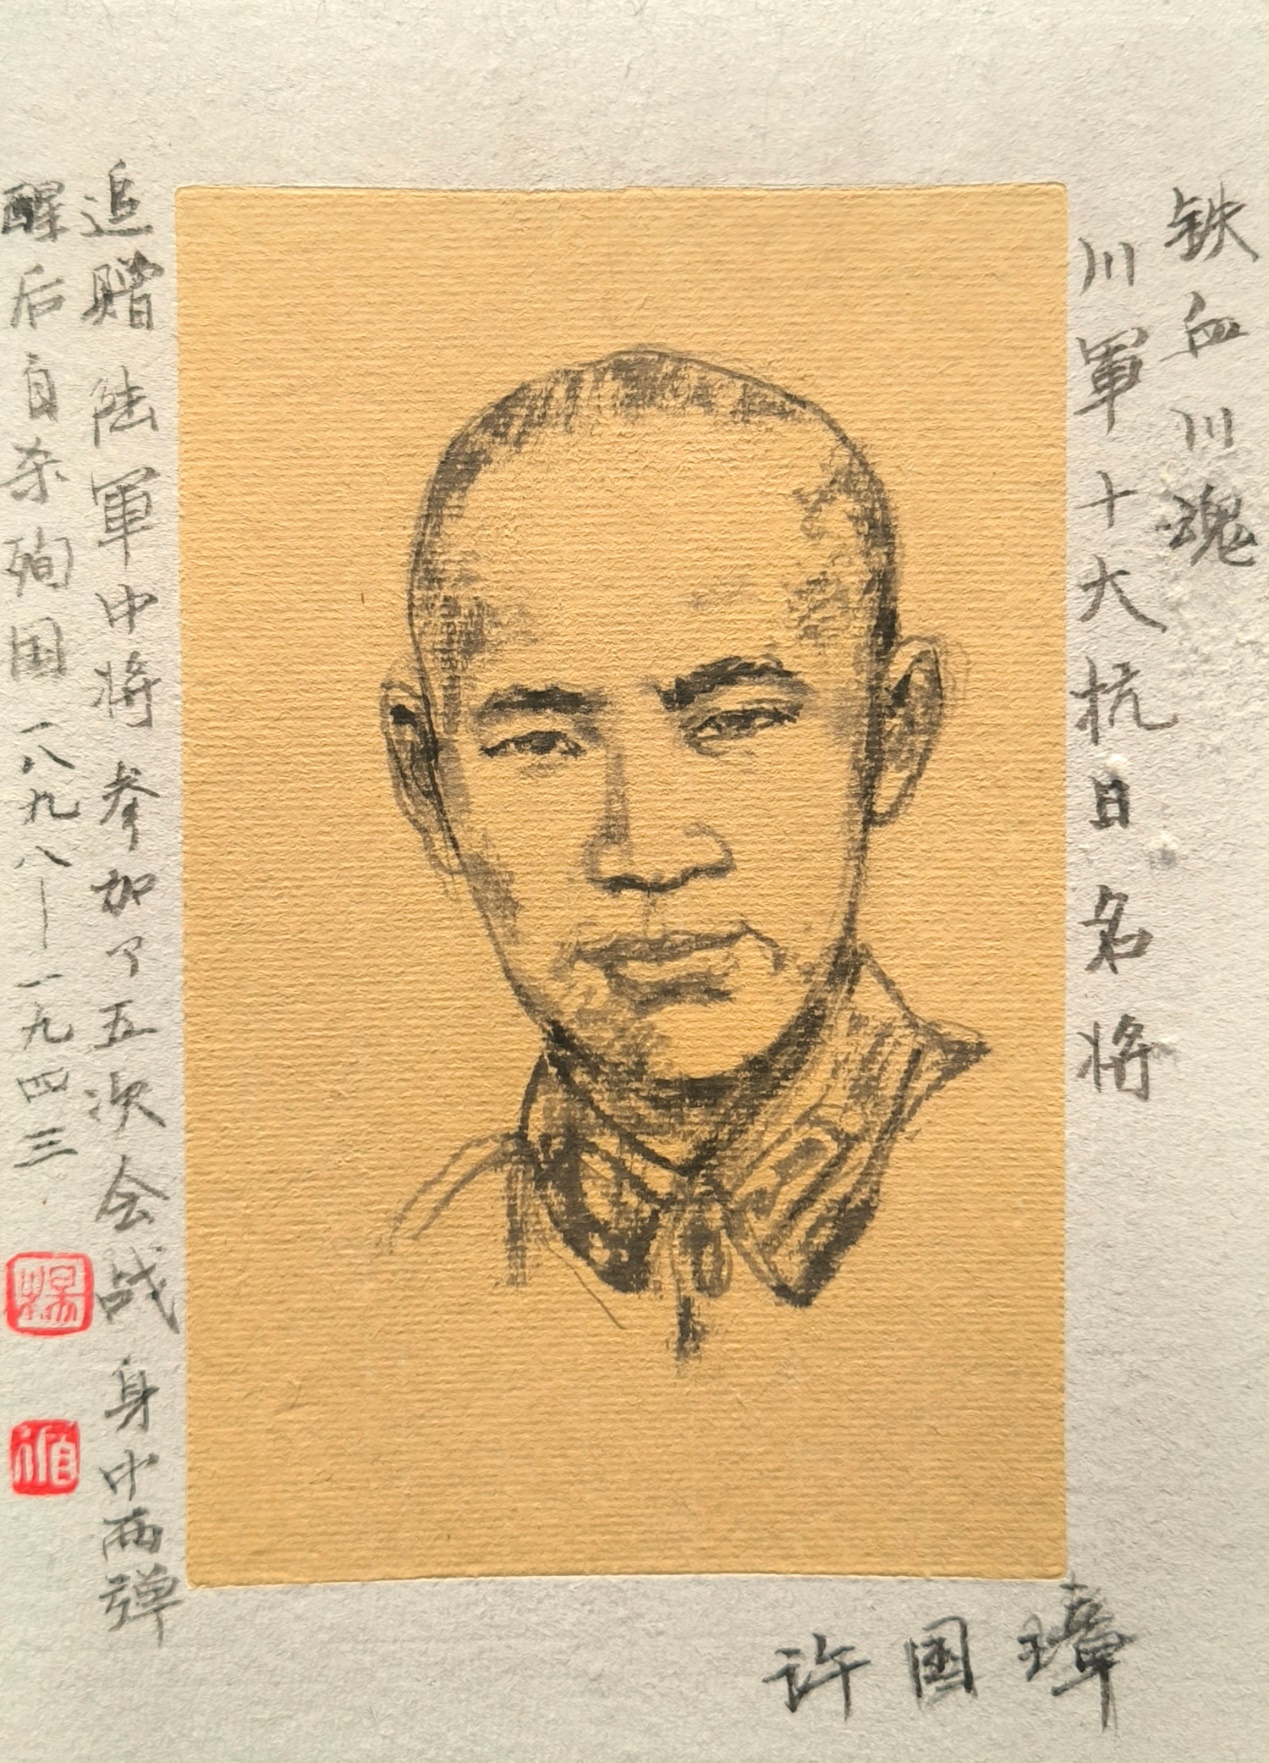 铁血川魂
川軍十大抗日名将
许国璋
追赠陆軍中将参加了五次会战身中两弹
醒后自杀殉国一八九八—一九四三